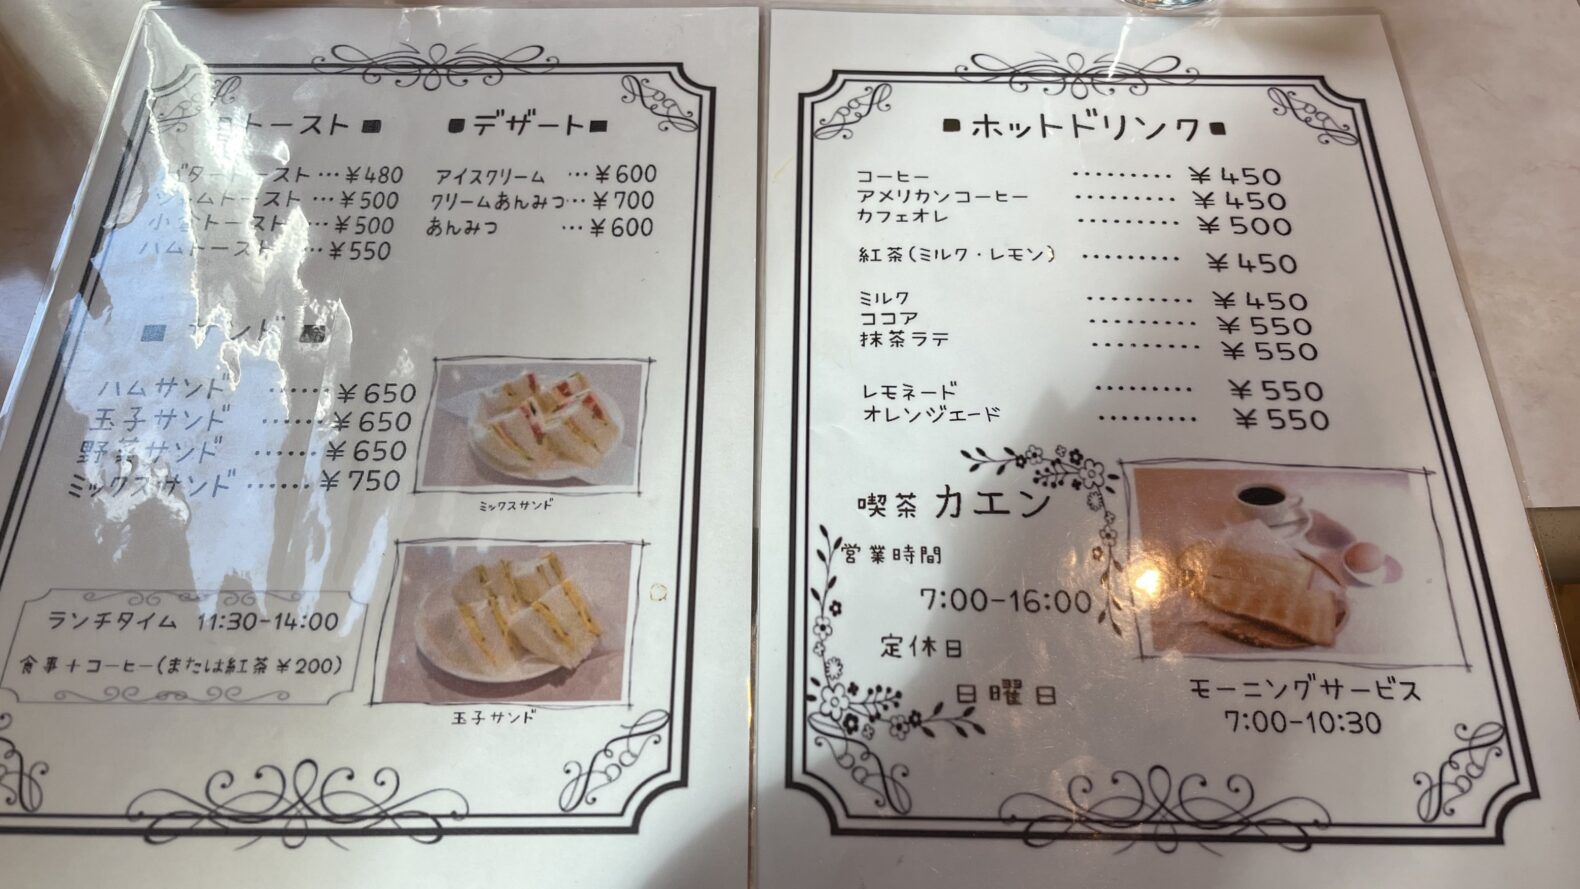 ■トースト■
バタートースト…¥480
ジャムトースト…¥500
小倉トースト…¥500
ハムトースト…¥550
■デザート■
アイスクリーム…¥600
クリームあんみつ…¥700
あんみつ…¥600
■サンド■
ハムサンド……¥650
玉子サンド……¥650
野菜サンド……¥650
ミックスサンド……¥750
ミックスサンド
玉子サンド
ランチタイム 11:30-14:00
食事+コーヒー(または紅茶¥200)
■ホットドリンク■
コーヒー………¥450
アメリカンコーヒー………¥450
カフェオレ………¥500
紅茶(ミルク・レモン)………¥450
ミルク………¥450
ココア………¥550
抹茶ラテ………¥550
レモネード………¥550
オレンジエード………¥550
喫茶 カエン
営業時間
7:00-16:00
定休日
日曜日
モーニングサービス
7:00-10:30